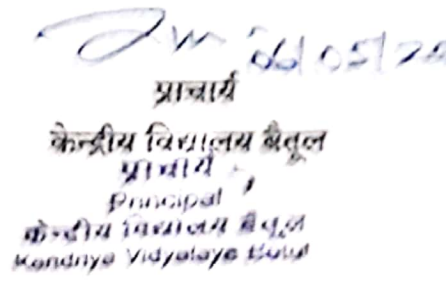 06/05/20
प्राचार्य
केन्द्रीय विद्यालय बैतूल
प्राचार्य
Principal
केन्द्रीय विद्यालय बैतूल
Kendriya Vidyalaya Betul